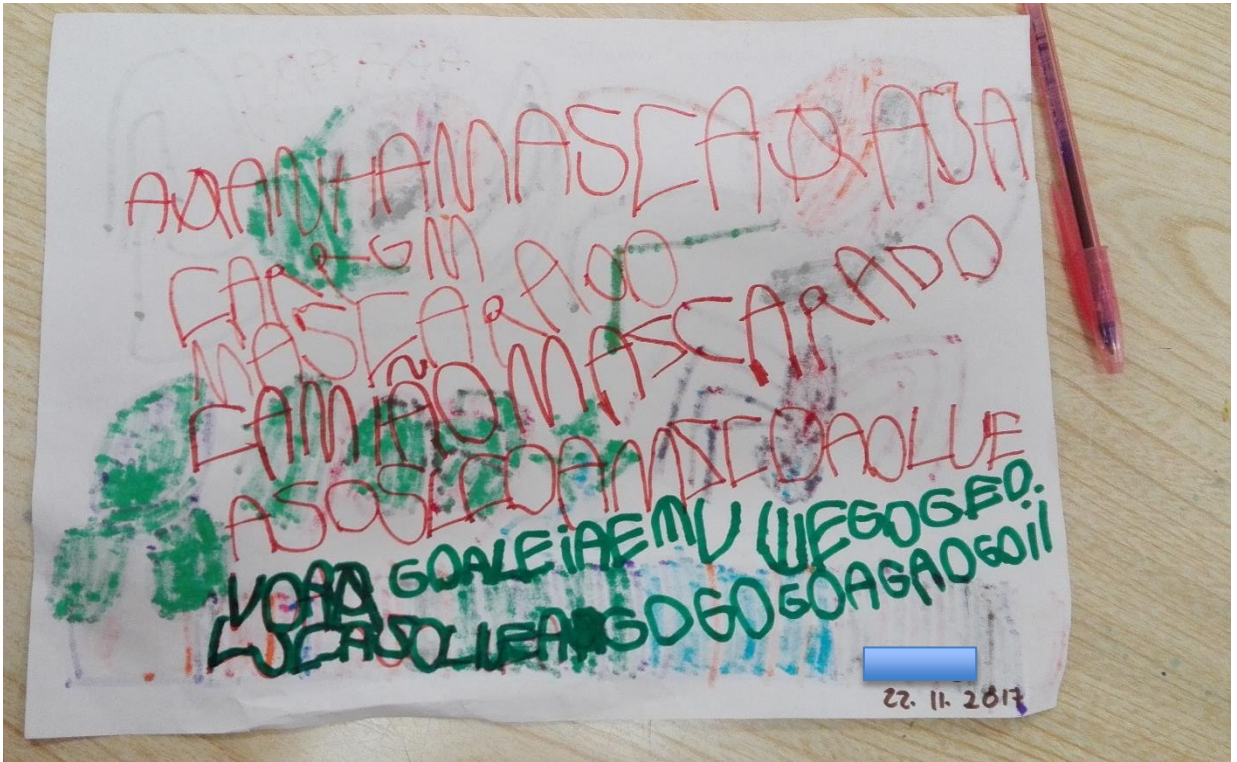 AQANHA MASCAQADA
CARRGM
MASCARADO
CAMIÃO MASCARADO
ASOSLCOAMSCOAOLUE
GOALEiAEMU WEGOGEO.
LUCASOLIVEA GOGOGOAGAOGOil
22. 11. 2017